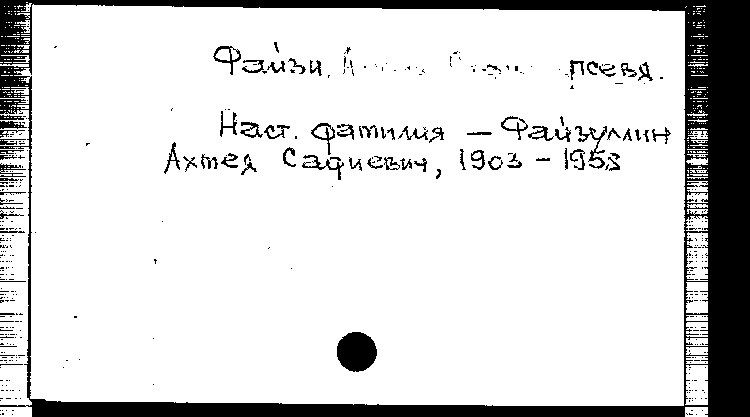 Файзи, псевд.
Наст. фамилия — Файзуллин
Ахмед Сафиевич, 1903 - 1958